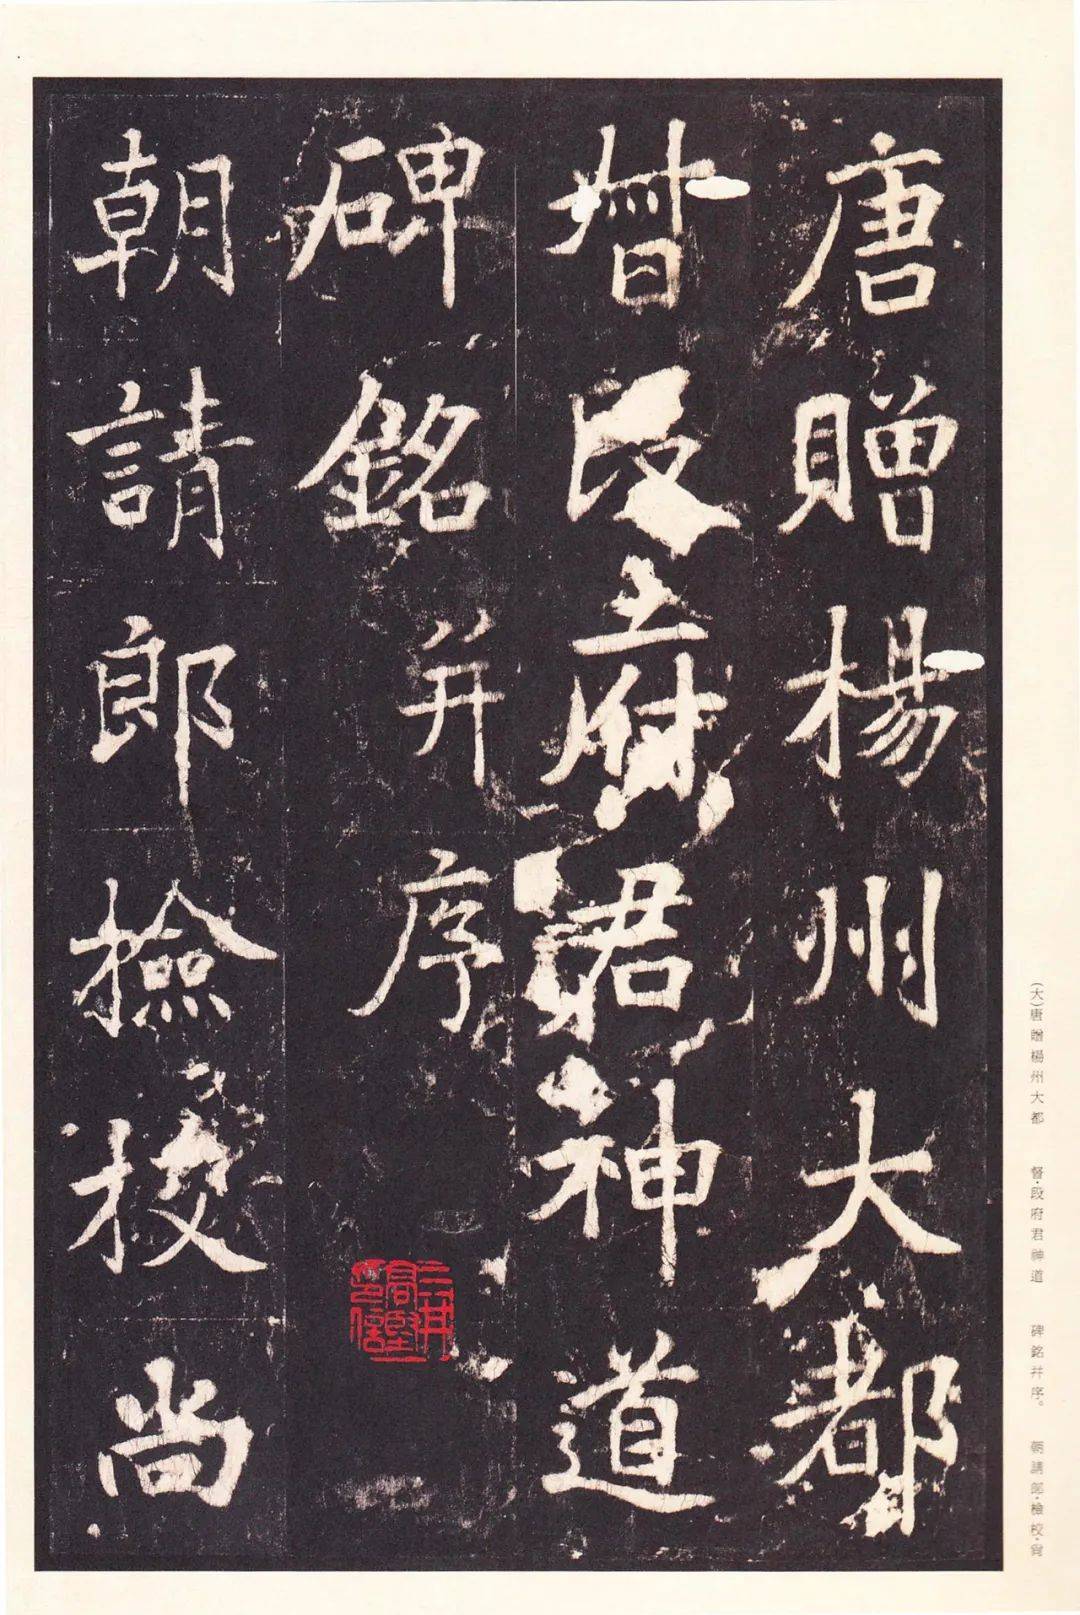 唐贈楊州大都
督段府君神道
碑銘并序
朝請郎檢校尚
三井高堅印信
(大)唐贈楊州大都　督·段府君神道　碑銘并序。　朝請郎·檢校·尚